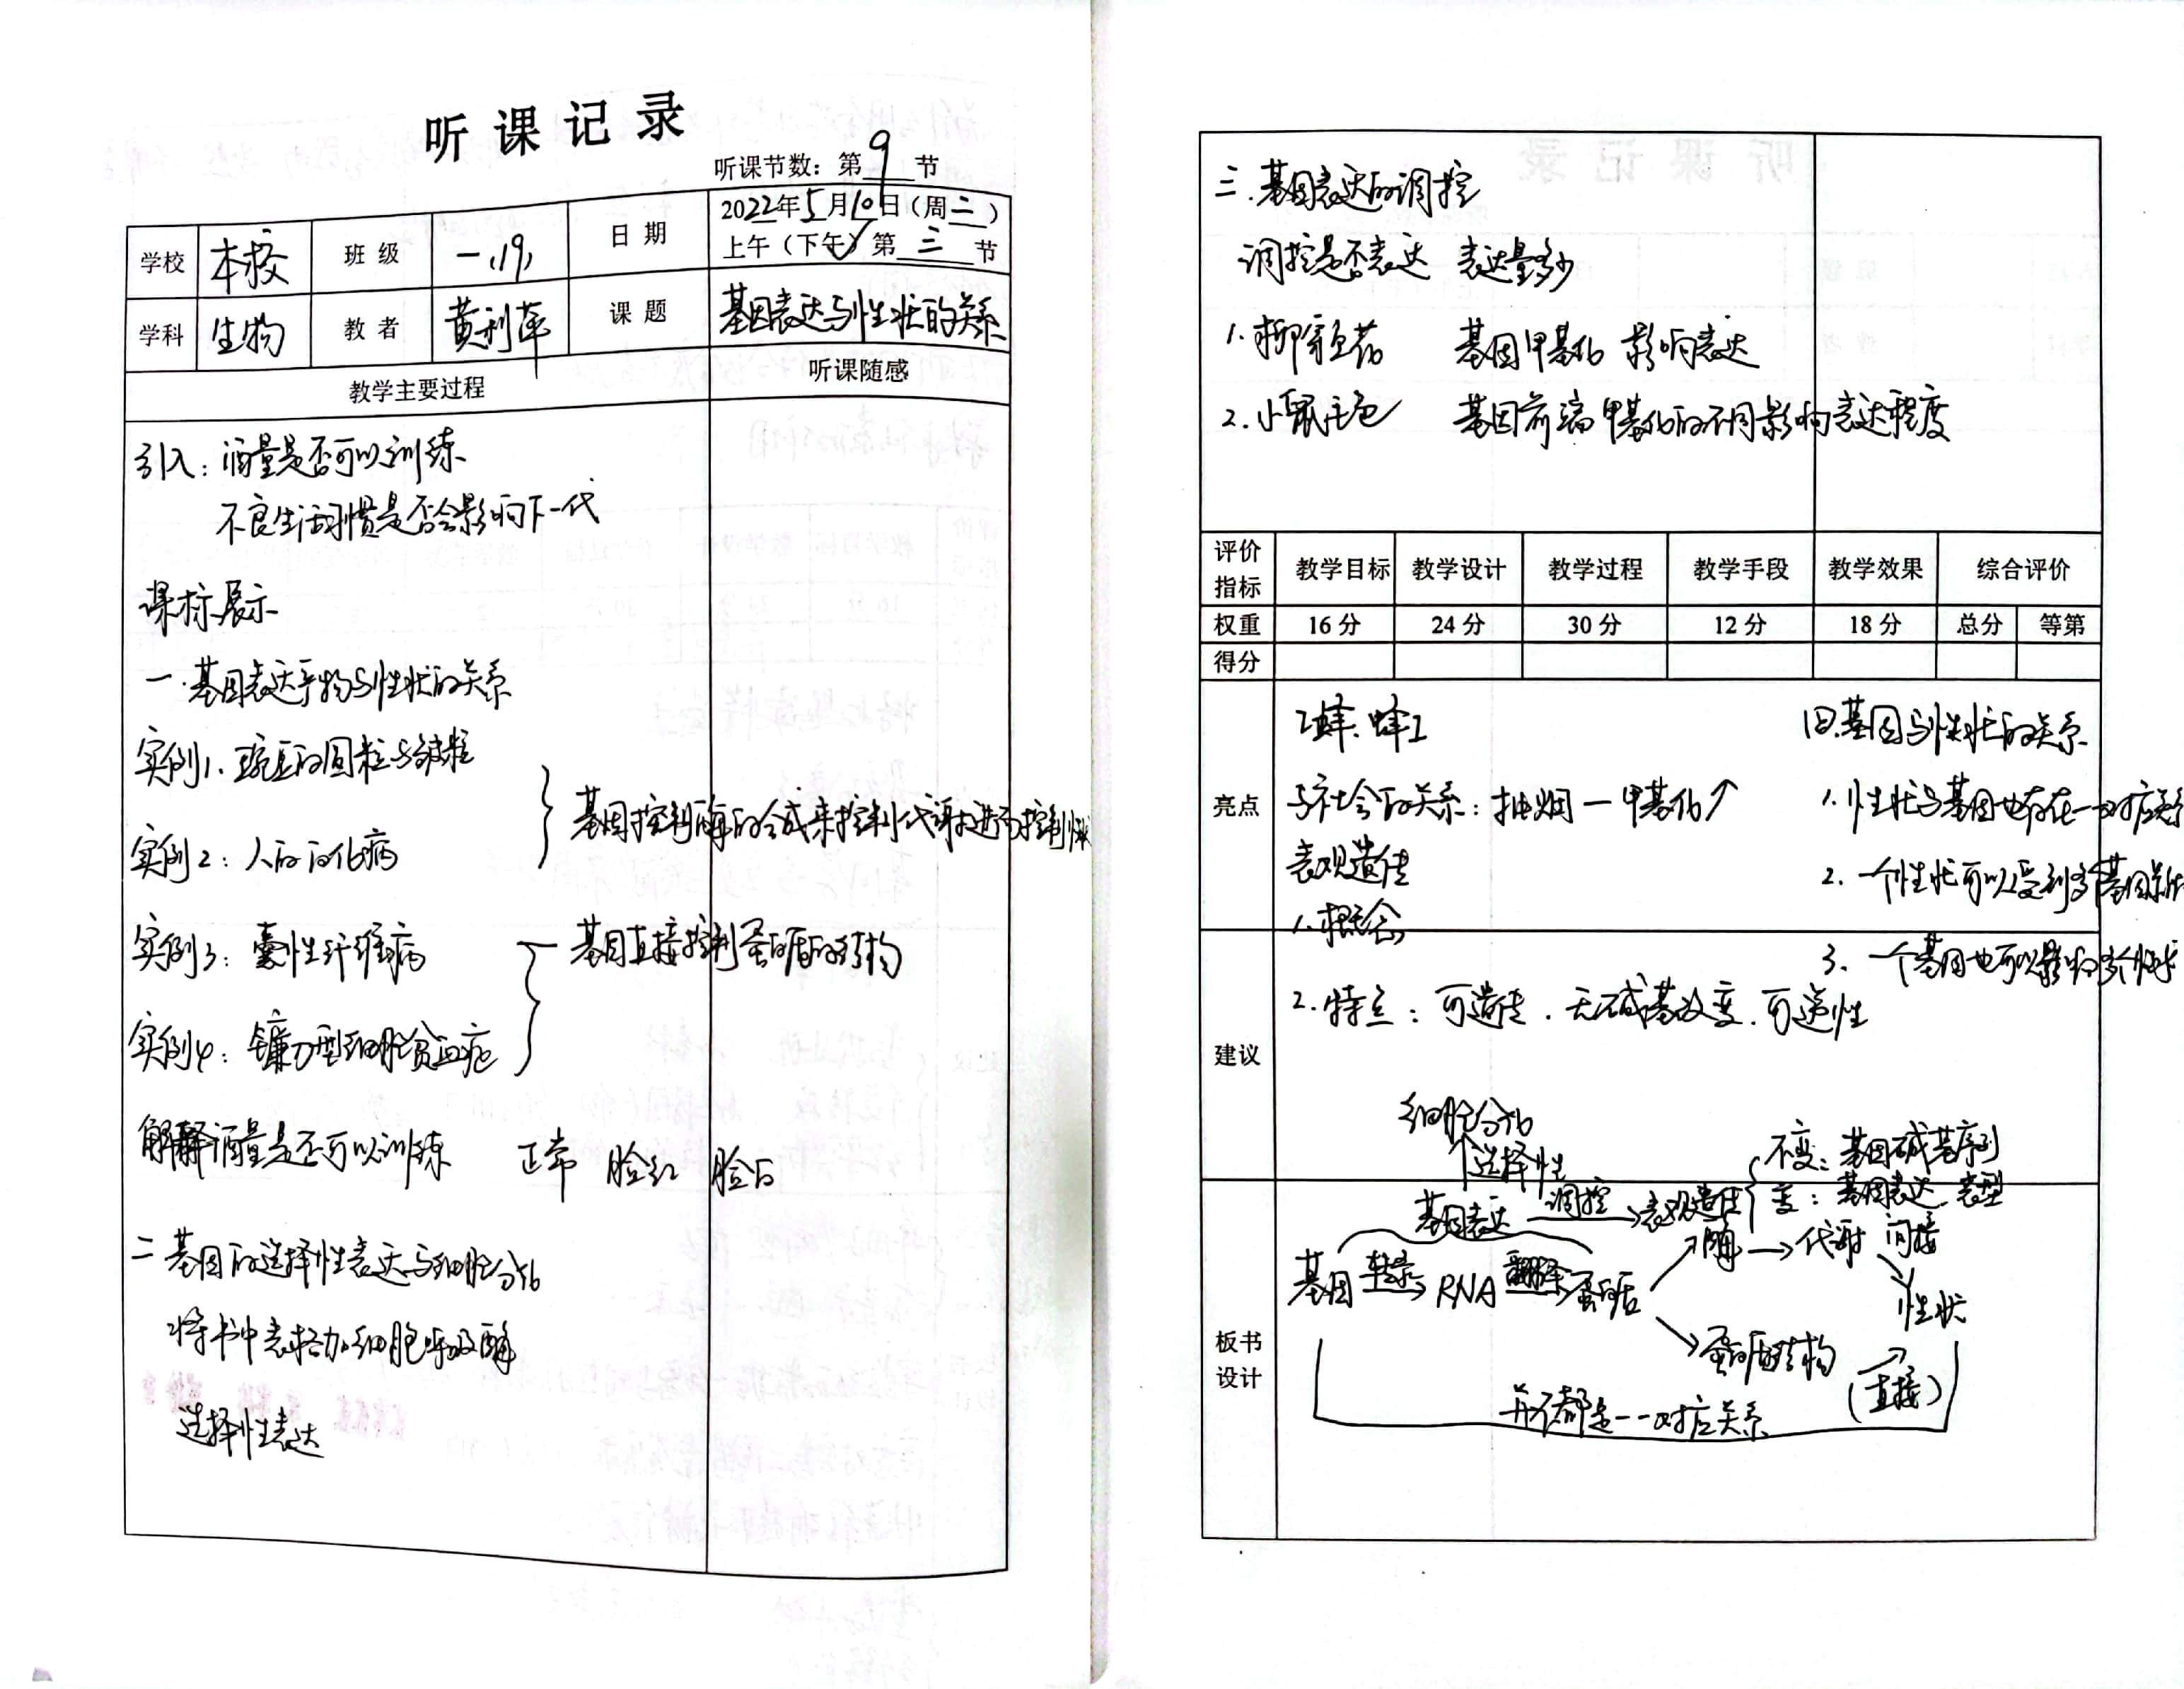 听课记录
听课节数：第9节
学校 本校 班级 一(19) 日期 2022年5月10日（周二）
上午（下午√）第三节
学科 生物 教者 黄利萍 课题 基因表达与性状的关系
教学主要过程 听课随感
引入：酒量是否可以训练
不良生活习惯是否会影响下一代
课标展示
一.基因表达产物与性状的关系
实例1.豌豆的圆粒与皱粒
基因控制酶的合成来控制代谢进而控制性状
实例2：人的白化病
实例3：囊性纤维病
基因直接控制蛋白质的结构
实例4：镰刀型细胞贫血症
解释酒量是否可以训练 正常 脸红 脸白
二 基因的选择性表达与细胞分化
将书中表格加细胞呼吸酶
选择性表达
三.基因表达的调控
调控是否表达 表达量多少
1.柳穿鱼花 基因甲基化 影响表达
2.小鼠毛色 基因前端甲基化的不同影响表达程度
评价指标 教学目标 教学设计 教学过程 教学手段 教学效果 综合评价
权重 16分 24分 30分 12分 18分 总分 等第
得分
亮点
工蜂、蜂王
与社会的关系：抽烟—甲基化↑
表观遗传
1.概念
四.基因与性状的关系
1.性状与基因也存在一一对应关系
2.一个性状可以受到多个基因影响
3.一个基因也可以影响多个性状
建议
2.特点：可遗传.无碱基改变.可逆性
板书设计
细胞分化
↑选择性
基因表达 调控→ 表观遗传
不变：基因碱基序列
变：基因表达、表型
基因 转录→ RNA 翻译→ 蛋白质
酶→代谢 间接
性状
蛋白质结构
（直接）
并不都是一一对应关系